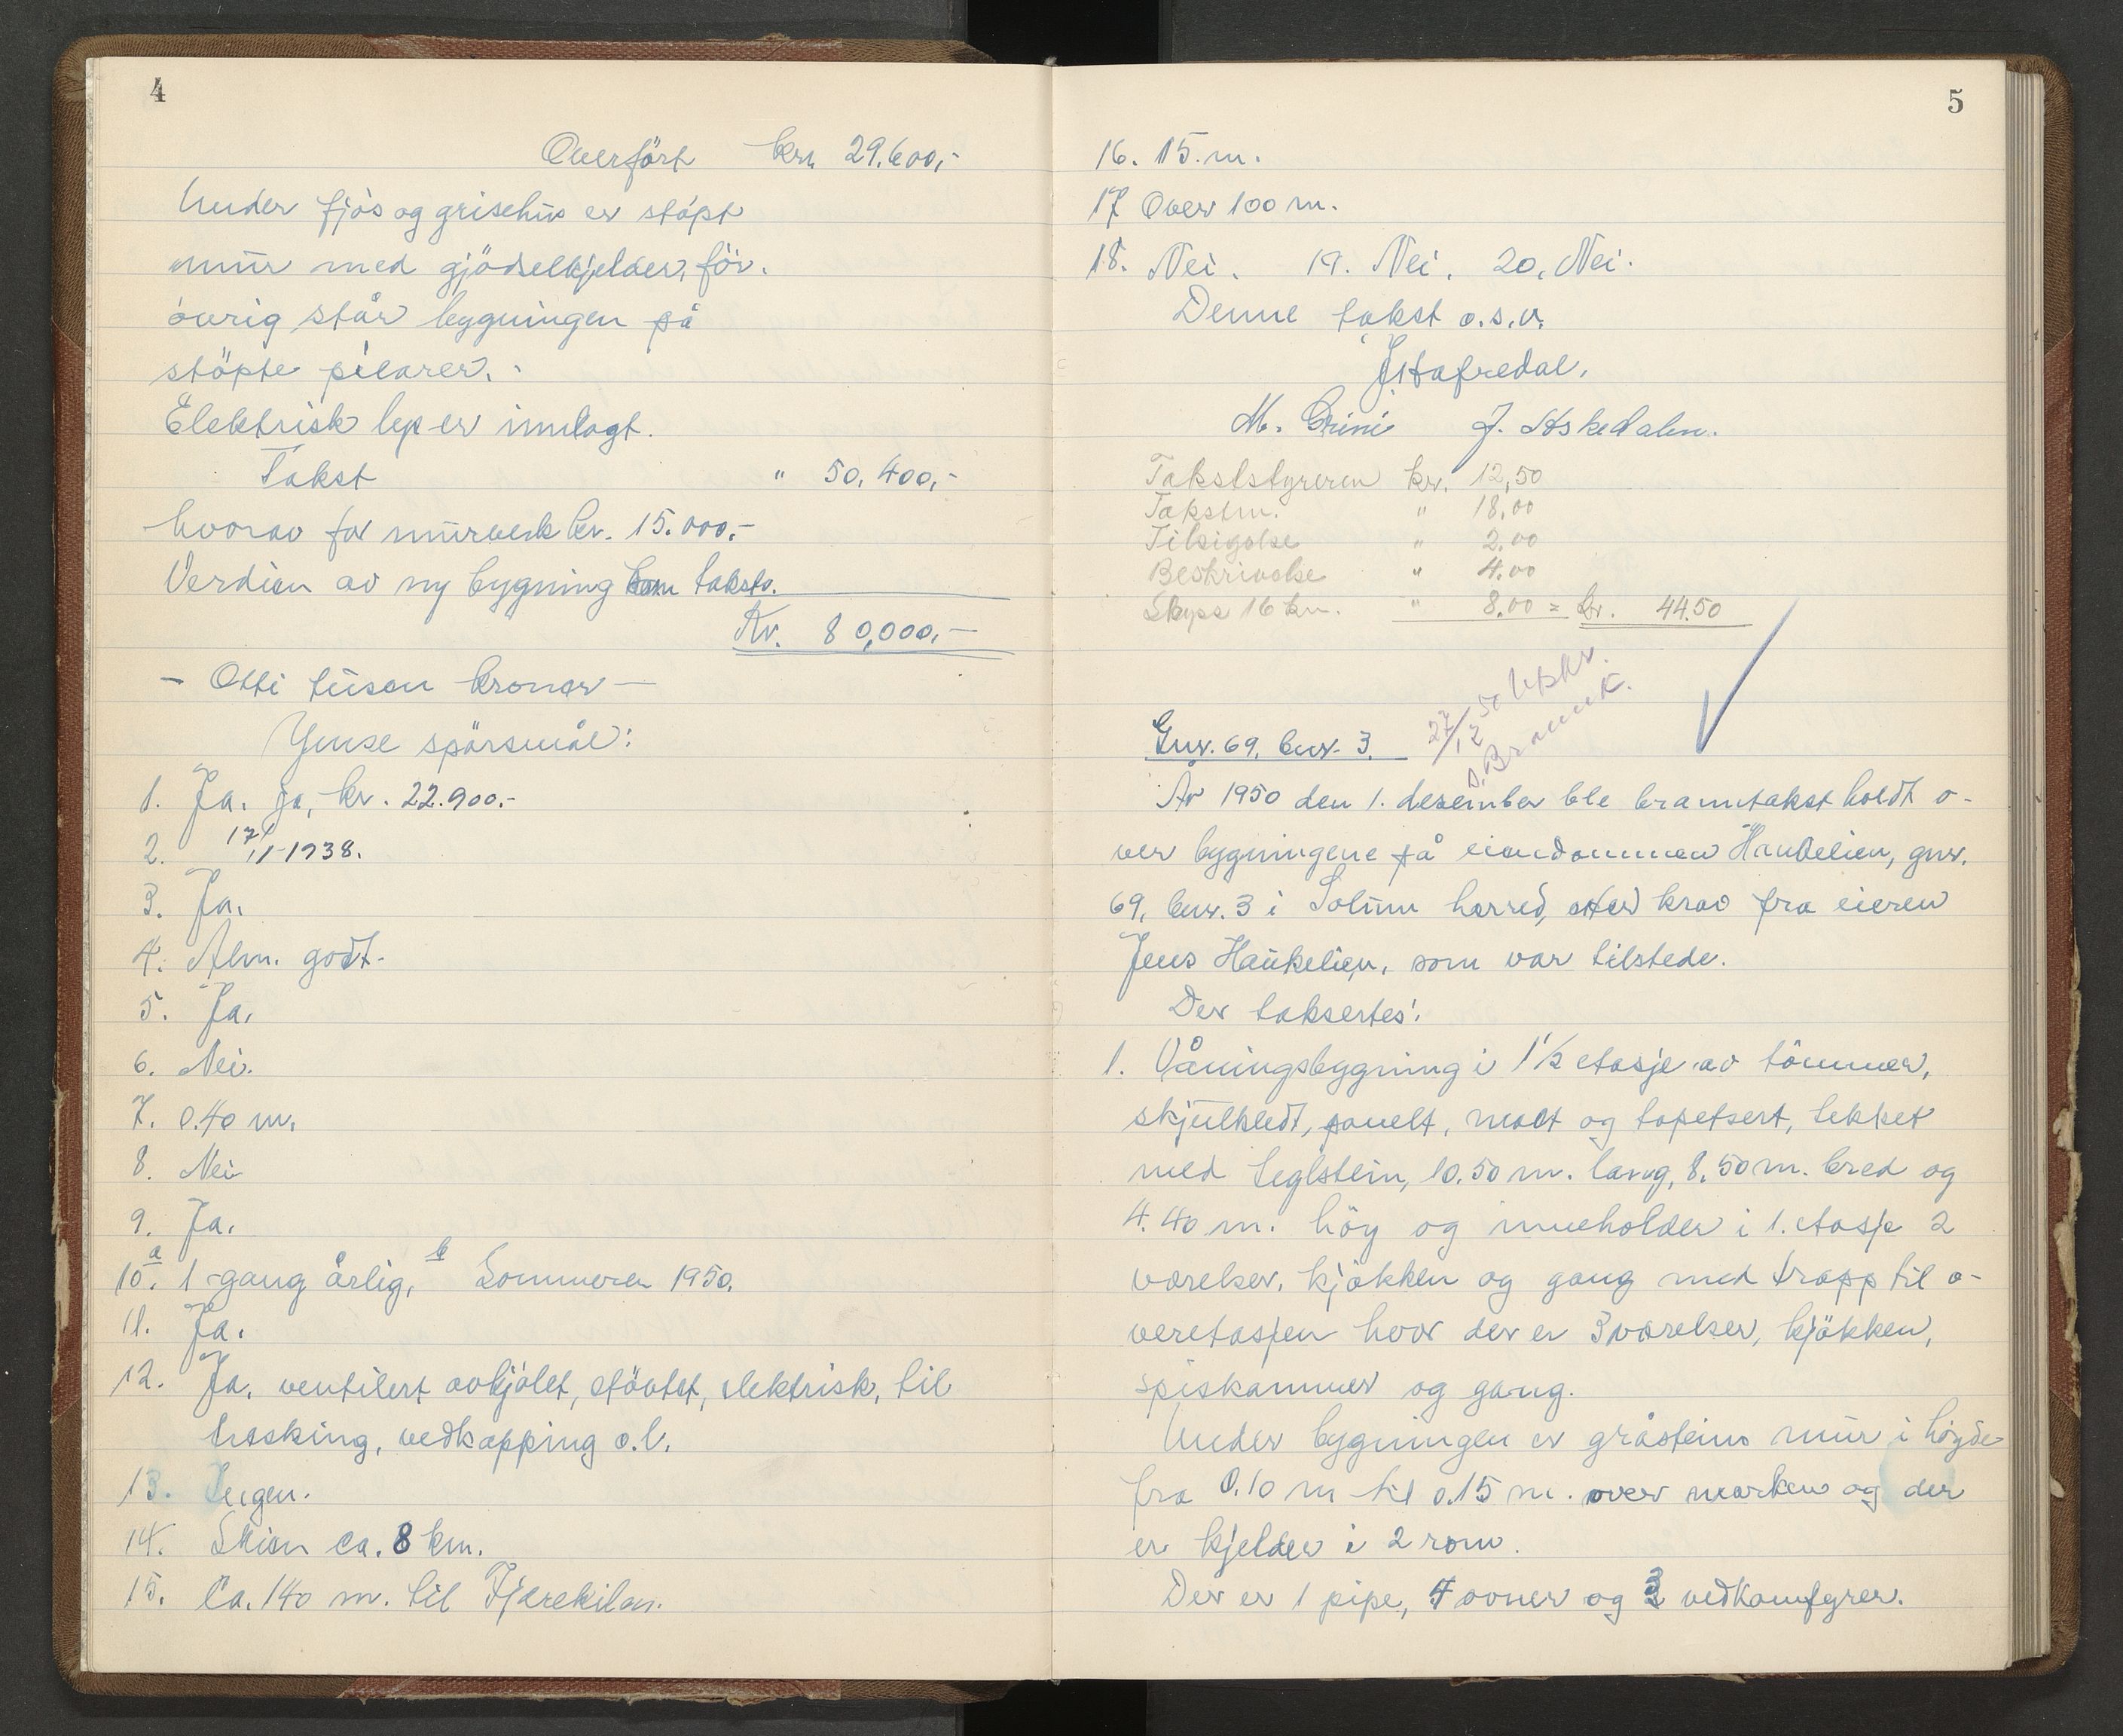 4
Overfört kr. 29.600,-
Under fjös og grisehus er stöpt
mur med gjödselkjelder, för.
övrig står bygningen på
stöpte pilarer.
Elektrisk lys er innlagt.
Takst " 50.400,-
hvorav for murverk kr. 15.000,-
Verdien av ny bygning som takst.
Kr. 80,000,-
- Otti tusen kroner -
Ymse spörsmål:
1. Ja. ja, kr. 22.900.-
2. 17/11-1938.
3. Ja.
4. Alm. godt.
5. Ja.
6. Nei.
7. 0.40 m.
8. Nei
9. Ja.
10. a 1 gang årlig, b Sommeren 1950.
11. Ja.
12. Ja, ventilert avkjölet, stövtet, elektrisk, til
tresking, vedkapping o.l.
13. Ingen.
14. Skien ca. 8 km.
15. Ca. 140 m. til Fjærekilen.
5
16. 15. m.
17 Over 100 m.
18. Nei. 19. Nei. 20. Nei.
Denne takst o.s.v.
M. Grini J. Askedalen.
Takststyreren kr. 12,50
Takstm. " 18,00
Tilsigelse " 2.00
Beskrivelse " 4.00
Skyss 16 km. " 8,00 = kr. 44.50
27/12 50 Utskr.
s. Brannk.
Gnr. 69, bnr. 3.
År 1950 den 1. desember ble branntakst holdt o-
ver bygningene på eiendommen Haukelien, gnr.
69, bnr. 3 i Solum herred, etter krav fra eieren
Jens Haukelien, som var tilstede.
Der taksertes:
1. Våningsbygning i 1 1/2 etasje av tömmer,
skjulkledt, panelt, malt og tapetsert, tekket
med teglstein, 10.50 m. lang, 8.50 m. bred og
4.40 m. höy og inneholder i 1. etasje 2
værelser, kjökken og gang med trapp til o-
veretasjen hvor der er 3 værelser, kjökken,
spiskammer og gang.
Under bygningen er gråsteins mur i höyde
fra 0.10 m til 0.15 m. over marken og der
er kjelder i 2 rom.
Der er 1 pipe, 4 ovner og 3 vedkomfyrer.